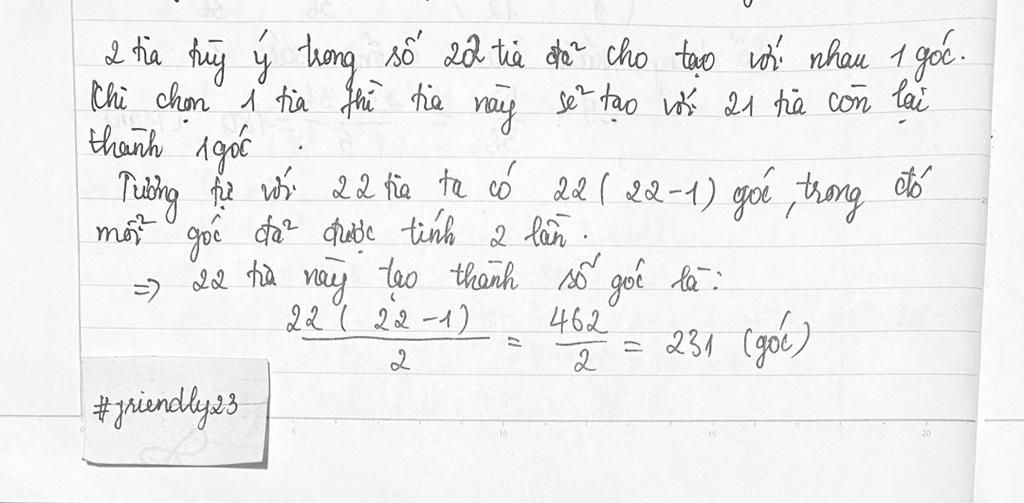 2 tia tùy ý trong số 22 tia đã cho tạo với nhau 1 góc.
Khi chọn 1 tia thì tia này sẽ tạo với 21 tia còn lại
thành 1 góc.
Tương tự với 22 tia ta có 22(22-1) góc, trong đó
mỗi góc đã được tính 2 lần.
=> 22 tia này tạo thành số góc là:
22(22-1)/2 = 462/2 = 231 (góc)
#friendly23